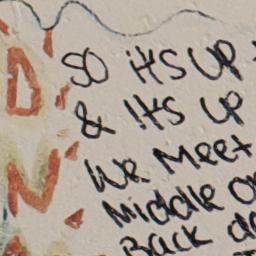 SO it'S UP
& it'S UP
We Meet
Middle
Back
D
N